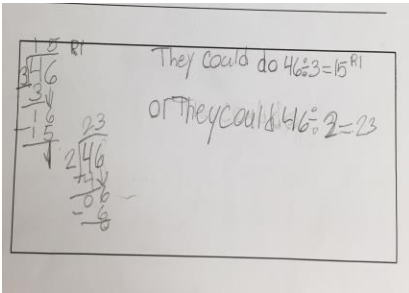 15 R1
3 46
3
16
-15
1
23
2 46
-4
06
-6
0
They could do 46÷3=15 R1
or They could 46÷2=23